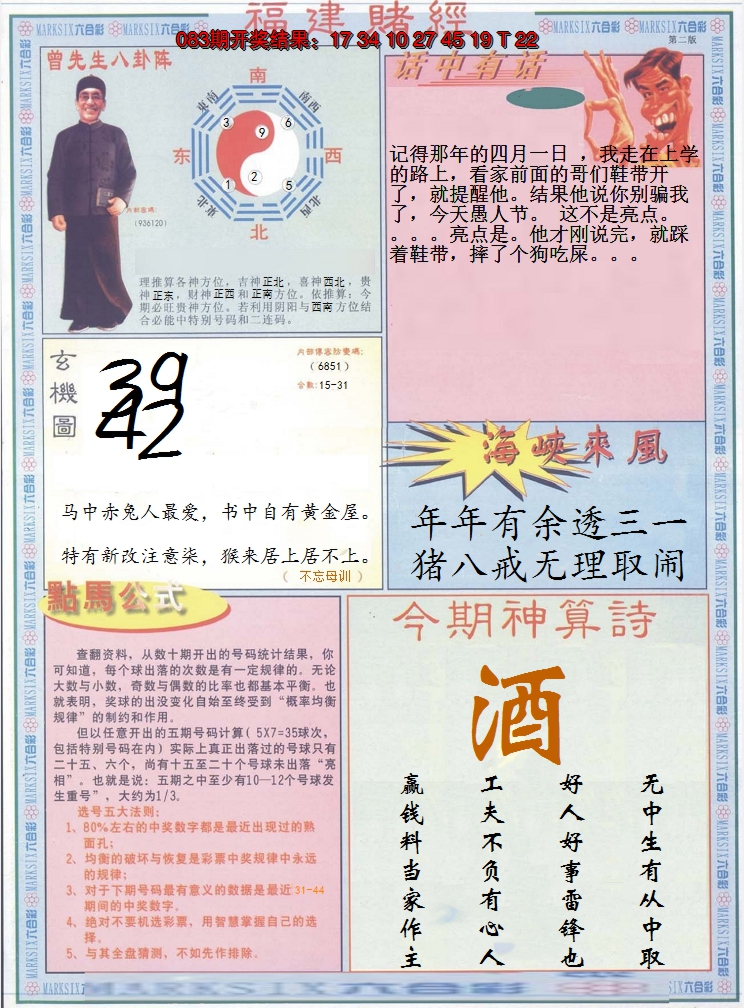 福建賭經
083期开奖结果：17 34 10 27 45 19 T 22
MARKSIX六合彩
第二版
曾先生八卦阵
南
東南
南西
东
西
東北
北西
北
3
9
6
1
2
5
内部密碼:
(936120)
理推算各神方位，吉神正北，喜神西北，贵
神正东，财神正西和正南方位。依推算：今
期必旺贵神方位。若利用阴阳与西南方位结
合必能中特别号码和二连码。
话中有话
记得那年的四月一日 ，我走在上学
的路上，看家前面的哥们鞋带开
了，就提醒他。结果他说你别骗我
了，今天愚人节。 这不是亮点。
。。。亮点是。他才刚说完，就踩
着鞋带，摔了个狗吃屎。。。
玄機圖
39
42
（6851）
合数:15-31
马中赤兔人最爱，书中自有黄金屋。
特有新改注意柒，猴来居上居不上。
（ 不忘母训 ）
海峡來風
年年有余透三一
猪八戒无理取闹
點馬公式
查翻资料，从数十期开出的号码统计结果，你
可知道，每个球出落的次数是有一定规律的。无论
大数与小数，奇数与偶数的比率也都基本平衡。也
就表明，奖球的出没变化自始至终受到“概率均衡
规律”的制约和作用。
但以任意开出的五期号码计算( 5X7=35球次，
包括特别号码在内) 实际上真正出落过的号球只有
二十五、六个，尚有十五至二十个号球未出落“亮
相”。也就是说：五期之中至少有10—12个号球发
生重号”，大约为1/3。
选号五大法则：
1、80%左右的中奖数字都是最近出现过的熟
面孔；
2、均衡的破坏与恢复是彩票中奖规律中永远
的规律；
3、对于下期号码最有意义的数据是最近31-44
期间的中奖数字。
4、绝对不要机选彩票，用智慧掌握自己的选
择。
5、与其全盘猜测，不如先作排除。
今期神算詩
酒
无中生有从中取
好人好事雷锋也
工夫不负有心人
赢钱料当家作主